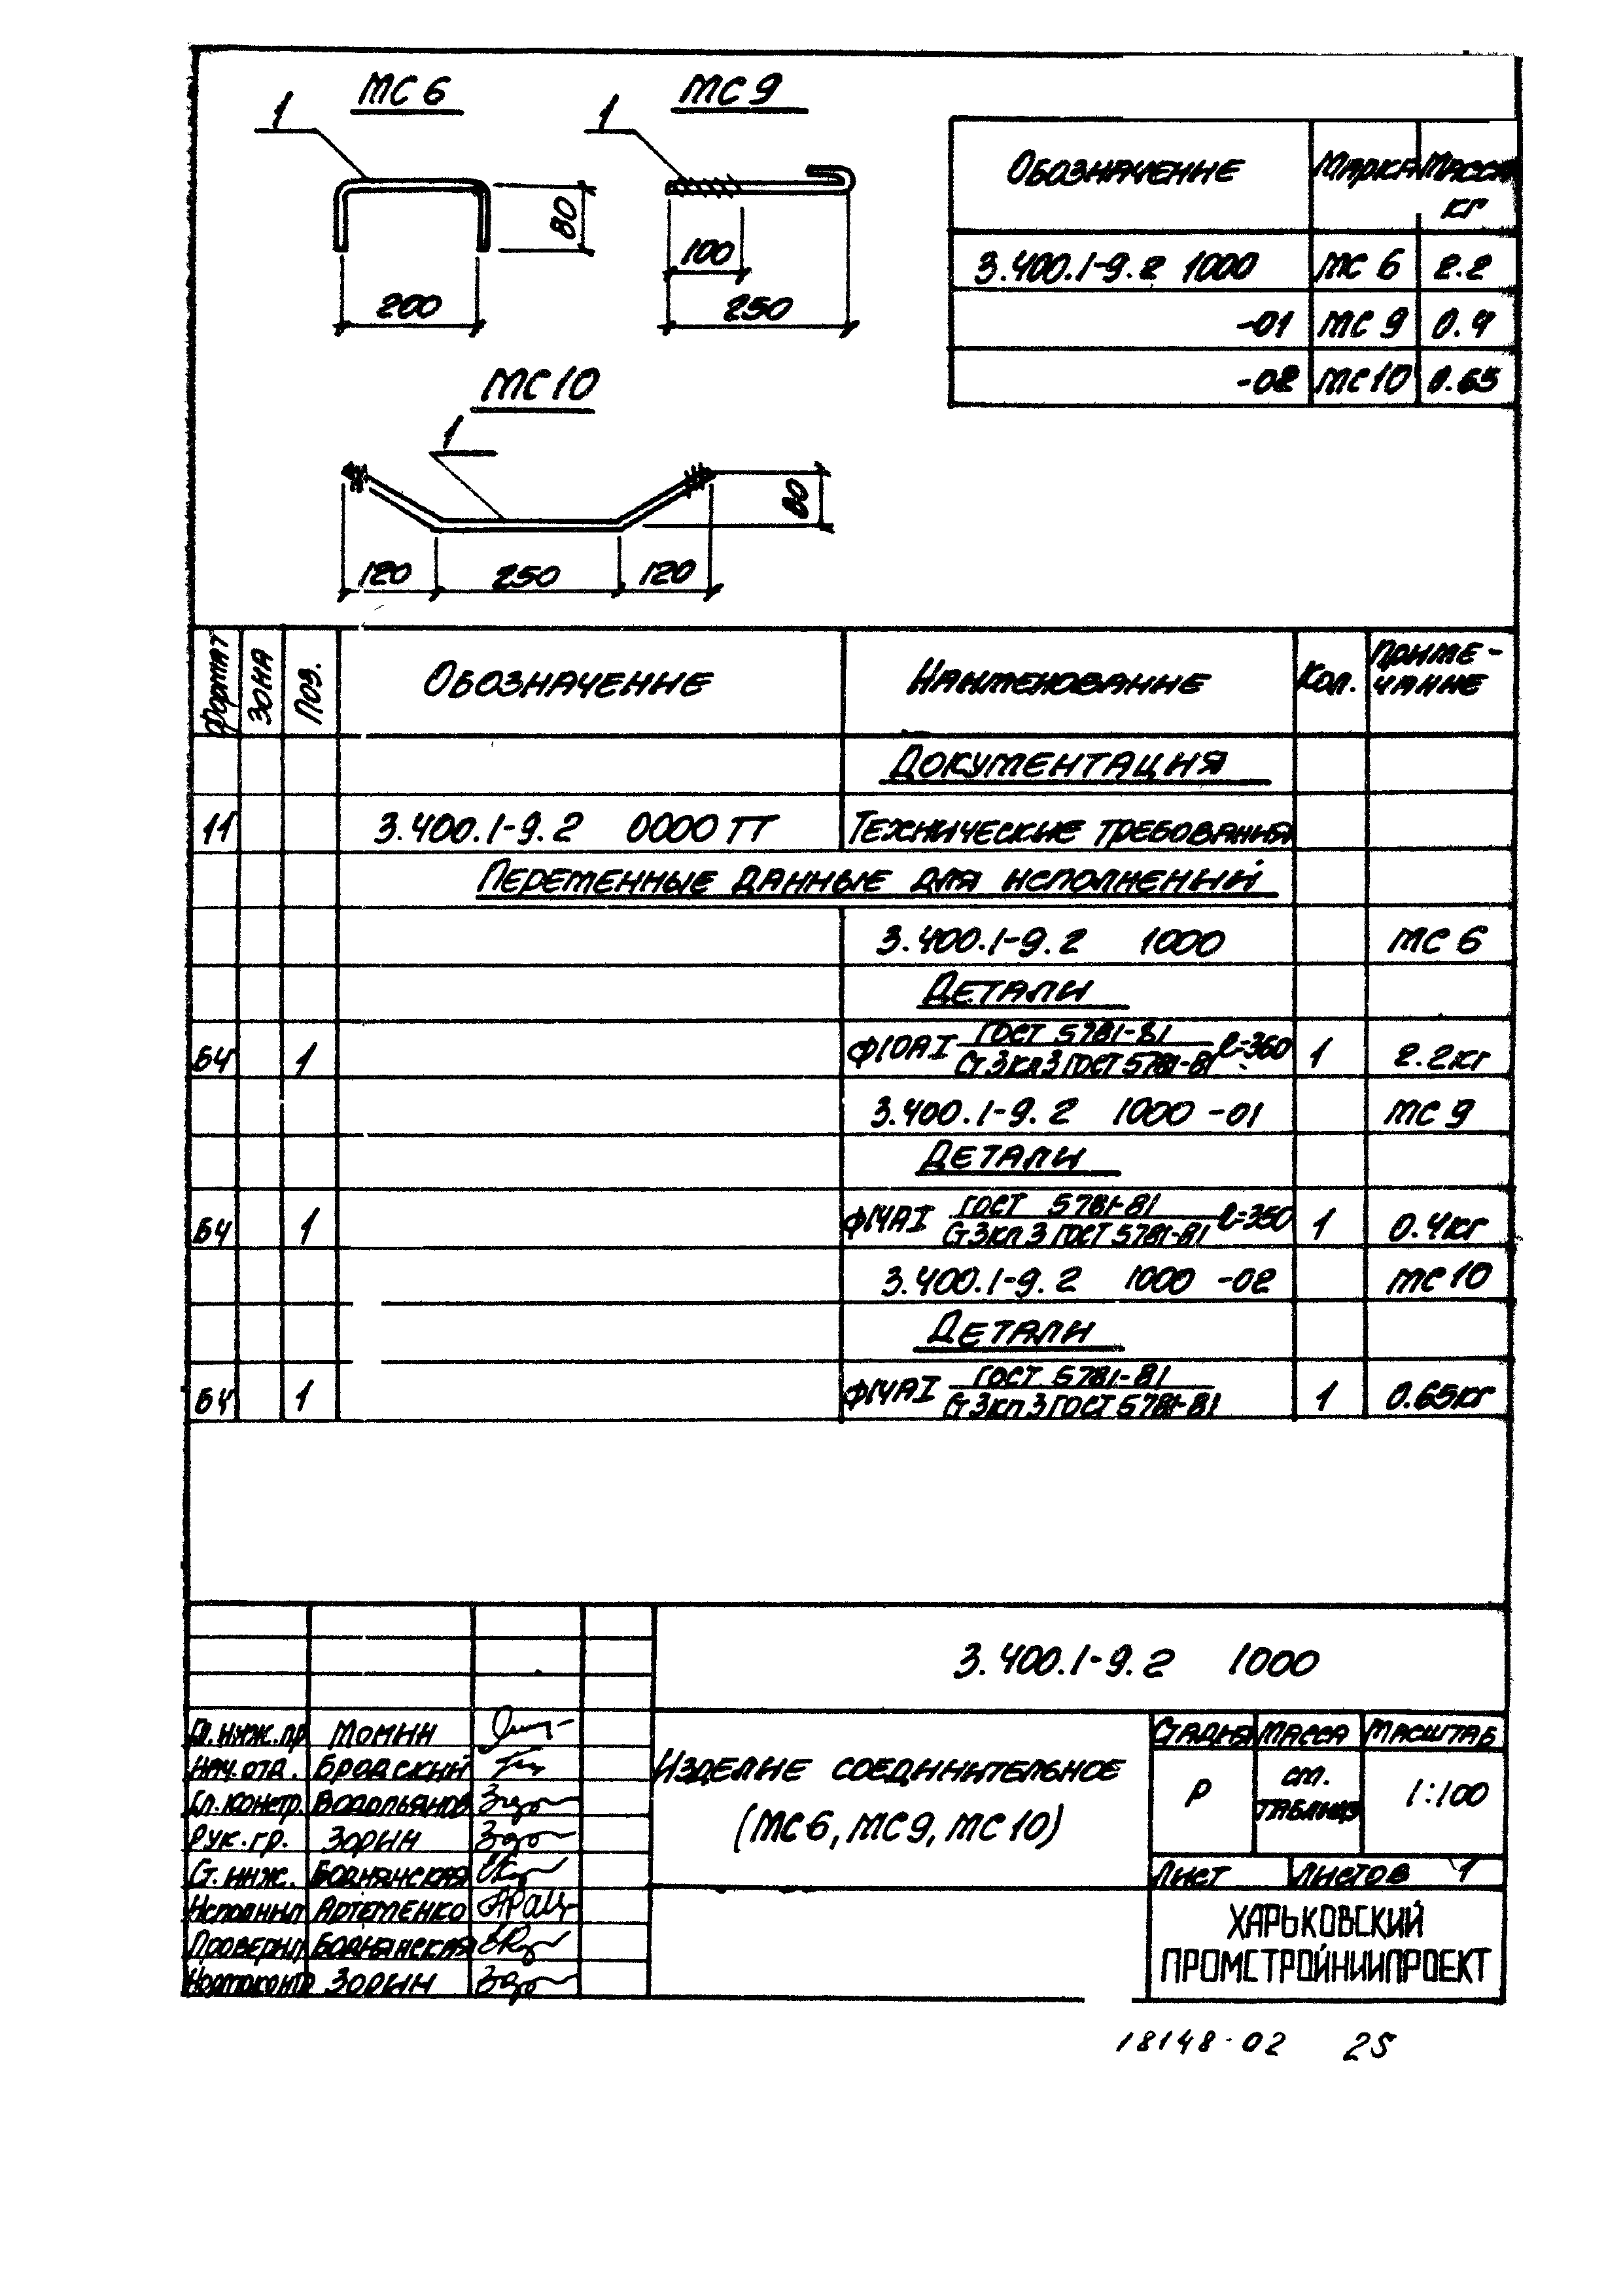 МС 6
1
80
200
МС 9
1
100
250
МС 10
1
80
120 250 120
Обозначение Марка Масса кг
3.400.1-9.2 1000 МС 6 2.2
-01 МС 9 0.4
-02 МС 10 0.65
Формат Зона Поз. Обозначение Наименование Кол. Приме-
чание
Документация
11 3.400.1-9.2 0000 ТТ Технические требования
Переменные данные для исполнений
3.400.1-9.2 1000 МС 6
Детали
БЧ 1 ф10АI ГОСТ 5781-81 ℓ=360 1 2.2кг
Ст3кп3 ГОСТ 5781-81
3.400.1-9.2 1000 -01 МС 9
Детали
БЧ 1 ф14АI ГОСТ 5781-81 ℓ=350 1 0.4кг
Ст3кп3 ГОСТ 5781-81
3.400.1-9.2 1000 -02 МС 10
Детали
БЧ 1 ф14АI ГОСТ 5781-81 1 0.65кг
Ст3кп3 ГОСТ 5781-81
3.400.1-9.2 1000
Гл.инж.пр Момин
Нач.отд. Бродский
Гл.констр. Водопьянов
Рук.гр. Зорин
Ст.инж. Боднянская
Исполнил Артеменко
Проверил Боднянская
Нормоконтр Зорин
Изделие соединительное
(МС 6, МС 9, МС 10)
Стадия Масса Масштаб
Р ст. таблицу 1:100
Лист Листов 1
ХАРЬКОВСКИЙ
ПРОМСТРОЙНИИПРОЕКТ
18148-02 25